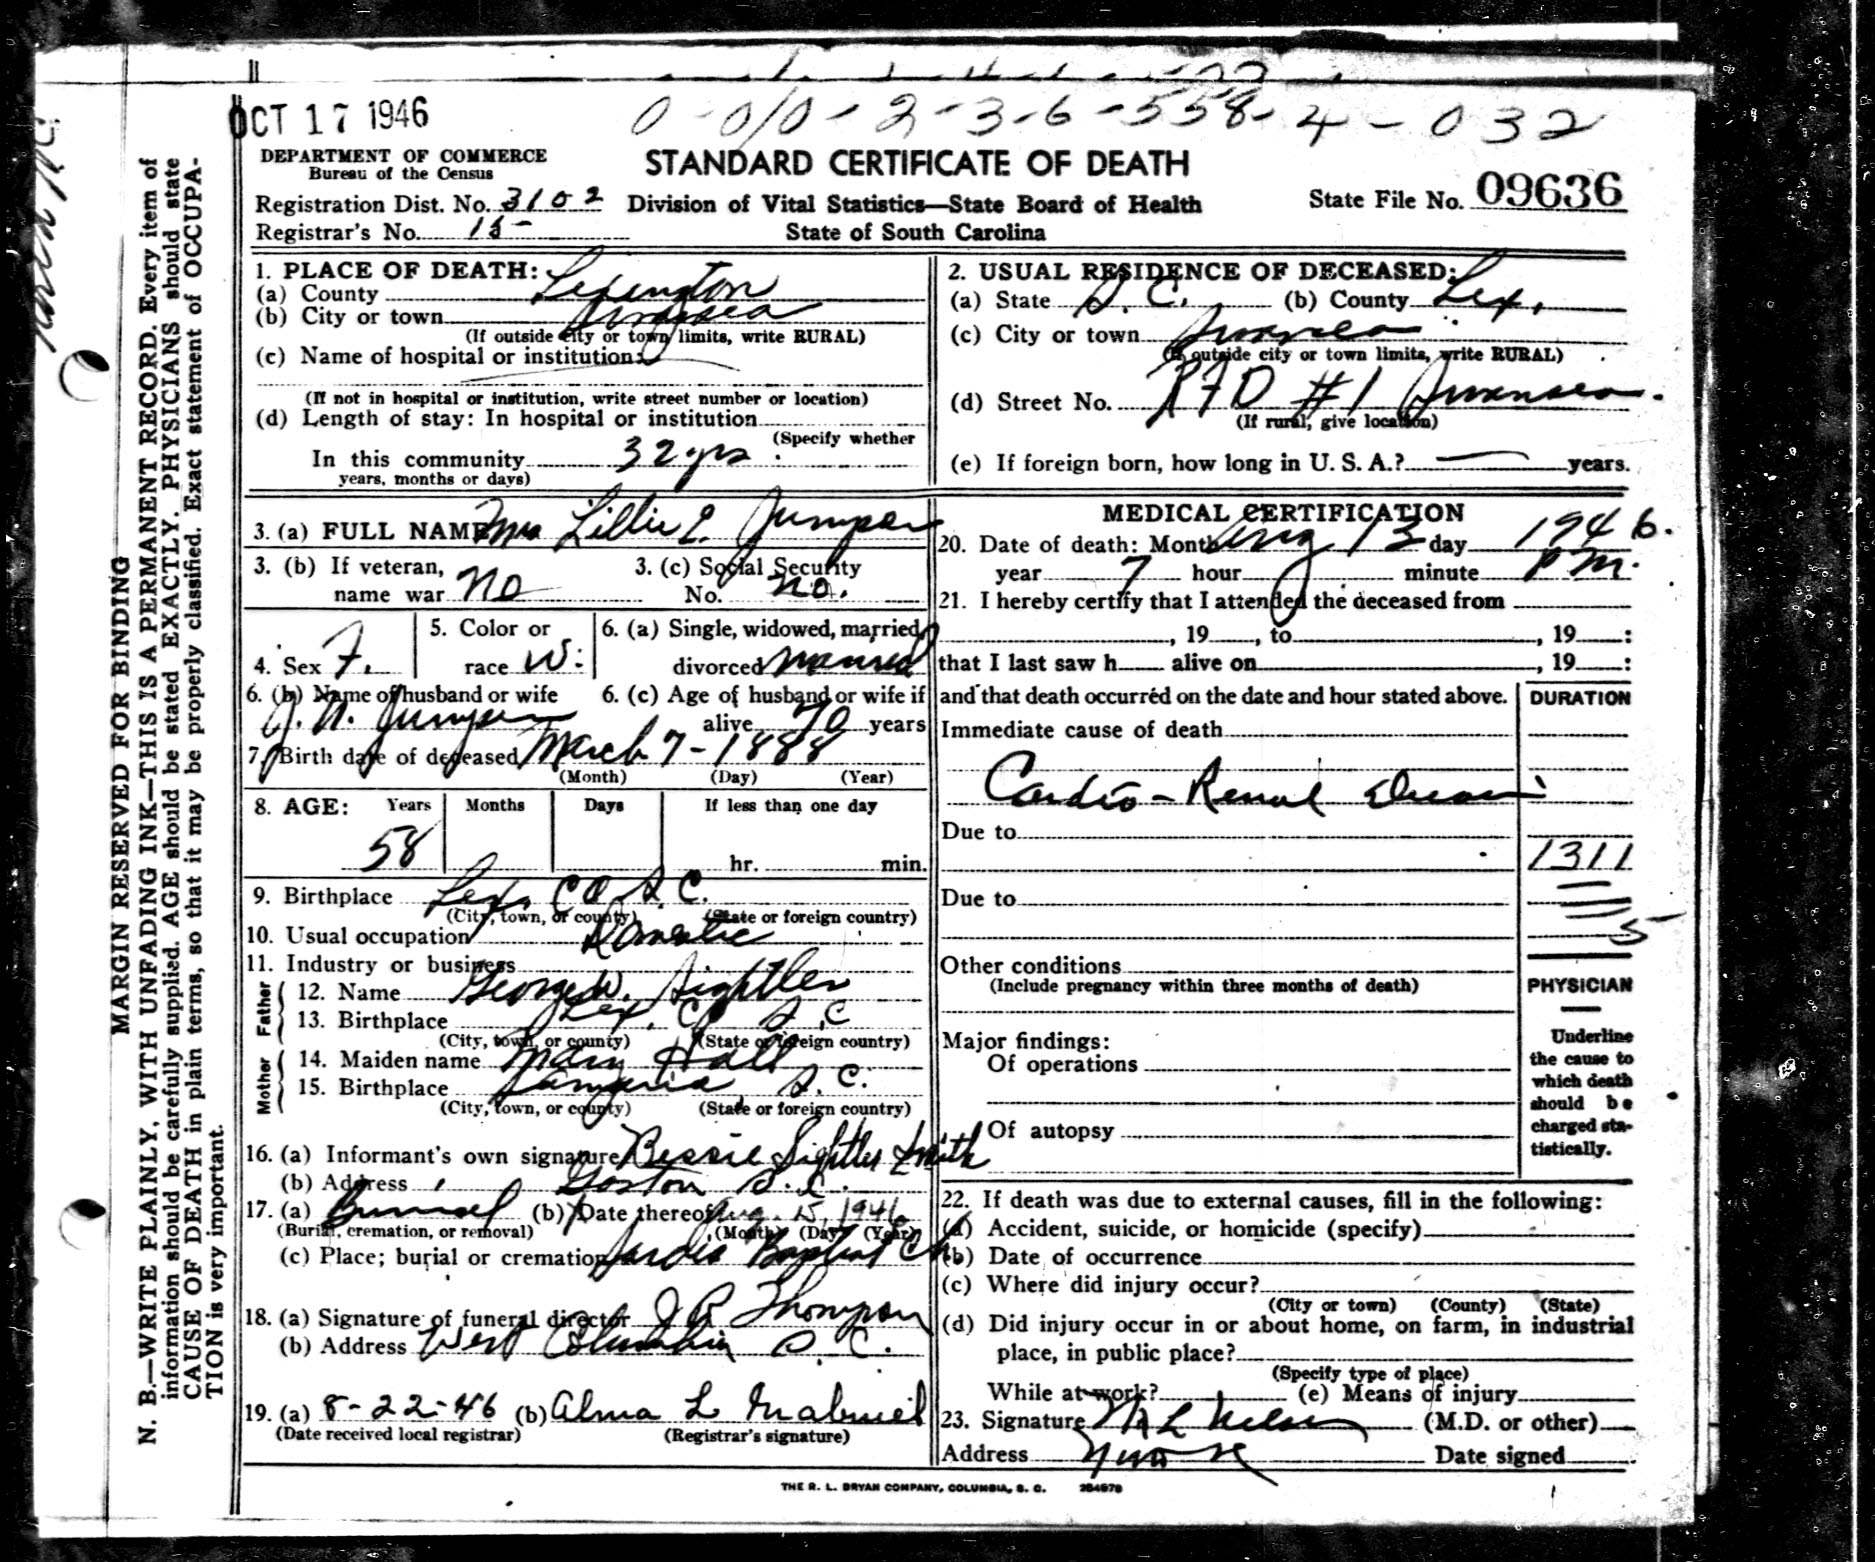 OCT 17 1946
0-010-2-3-6-558-4-032
DEPARTMENT OF COMMERCE
Bureau of the Census
STANDARD CERTIFICATE OF DEATH
Registration Dist. No. 3102
Division of Vital Statistics—State Board of Health
State File No. 09636
Registrar's No. 15-
State of South Carolina
MARGIN RESERVED FOR BINDING
N. B.—WRITE PLAINLY, WITH UNFADING INK—THIS IS A PERMANENT RECORD. Every item of
information should be carefully supplied. AGE should be stated EXACTLY. PHYSICIANS should state
CAUSE OF DEATH in plain terms, so that it may be properly classified. Exact statement of OCCUPA-
TION is very important.
1. PLACE OF DEATH:
(a) County Lexington
(b) City or town Swansea
(If outside city or town limits, write RURAL)
(c) Name of hospital or institution:
(If not in hospital or institution, write street number or location)
(d) Length of stay: In hospital or institution
(Specify whether
In this community 32 yrs
years, months or days)
2. USUAL RESIDENCE OF DECEASED:
(a) State S. C. (b) County Lex.
(c) City or town Swansea
(If outside city or town limits, write RURAL)
(d) Street No. RFD #1 Swansea.
(If rural, give location)
(e) If foreign born, how long in U. S. A.? — years.
3. (a) FULL NAME Mrs Lillie E. Jumper
3. (b) If veteran,
name war No
3. (c) Social Security
No. no.
4. Sex F.
5. Color or
race W.
6. (a) Single, widowed, married,
divorced married
6. (b) Name of husband or wife
J. N. Jumper
6. (c) Age of husband or wife if
alive 70 years
7. Birth date of deceased March 7-1888
(Month) (Day) (Year)
8. AGE: Years Months Days If less than one day
58 hr. min.
9. Birthplace Lex. Co S. C.
(City, town, or county) (State or foreign country)
10. Usual occupation Domestic
11. Industry or business
Father
12. Name George W. Sightler
13. Birthplace Lex. Co S. C
(City, town, or county) (State or foreign country)
Mother
14. Maiden name Mary Hall
15. Birthplace S. C.
(City, town, or county) (State or foreign country)
16. (a) Informant's own signature Bessie Sightler Smith
(b) Address Gaston S. C.
17. (a) Burial (b) Date thereof Aug. 15, 1946
(Burial, cremation, or removal) (Month) (Day) (Year)
(c) Place; burial or cremation Baptist Ch
18. (a) Signature of funeral director J R Thompson
(b) Address West Columbia S. C.
19. (a) 8-22-46 (b) Alma L
(Date received local registrar) (Registrar's signature)
MEDICAL CERTIFICATION
20. Date of death: Month Aug 13 day 1946.
year 7 hour minute P M.
21. I hereby certify that I attended the deceased from
, 19 , to , 19 :
that I last saw h alive on , 19 :
and that death occurred on the date and hour stated above.
DURATION
Immediate cause of death
Cardio-Renal Disease
Due to
1311
Due to
5
Other conditions
(Include pregnancy within three months of death)
PHYSICIAN
Underline
the cause to
which death
should be
charged sta-
tistically.
Major findings:
Of operations
Of autopsy
22. If death was due to external causes, fill in the following:
(a) Accident, suicide, or homicide (specify)
(b) Date of occurrence
(c) Where did injury occur?
(City or town) (County) (State)
(d) Did injury occur in or about home, on farm, in industrial
place, in public place?
(Specify type of place)
While at work? (e) Means of injury
23. Signature (M.D. or other)
Address Date signed
THE R. L. BRYAN COMPANY, COLUMBIA, S. C. 264978